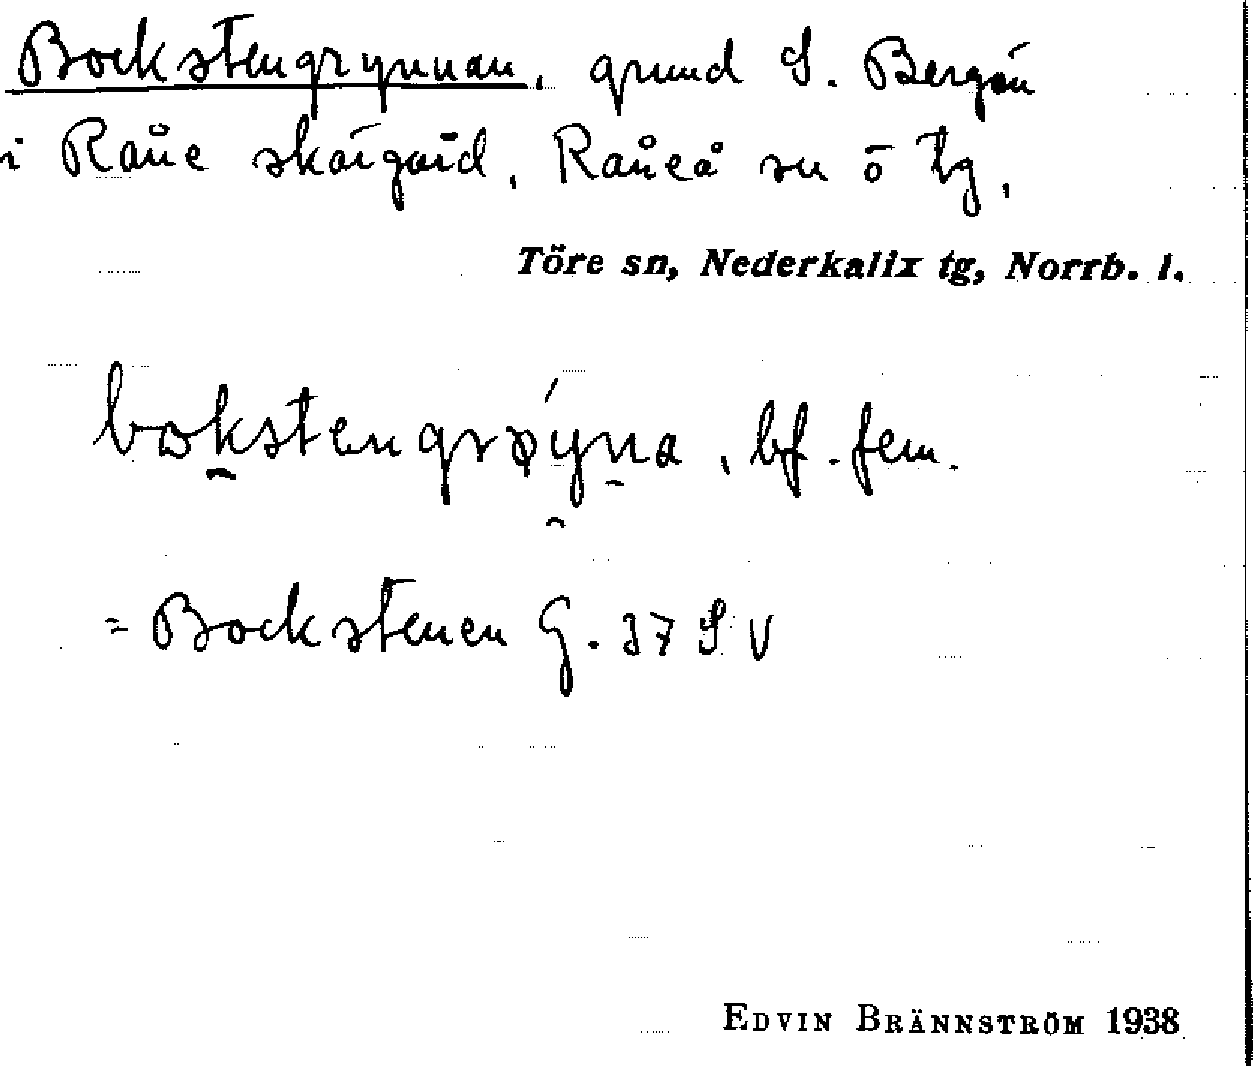 Bockstengrynnan, grund S. Bergön
i Råne skärgård, Råneå sn o tg,
Töre sn, Nederkalix tg, Norrb. l.
bokstengrøyna, bf. fem.
= Bockstenen G. 37 SV
EDVIN BRÄNNSTRÖM 1938